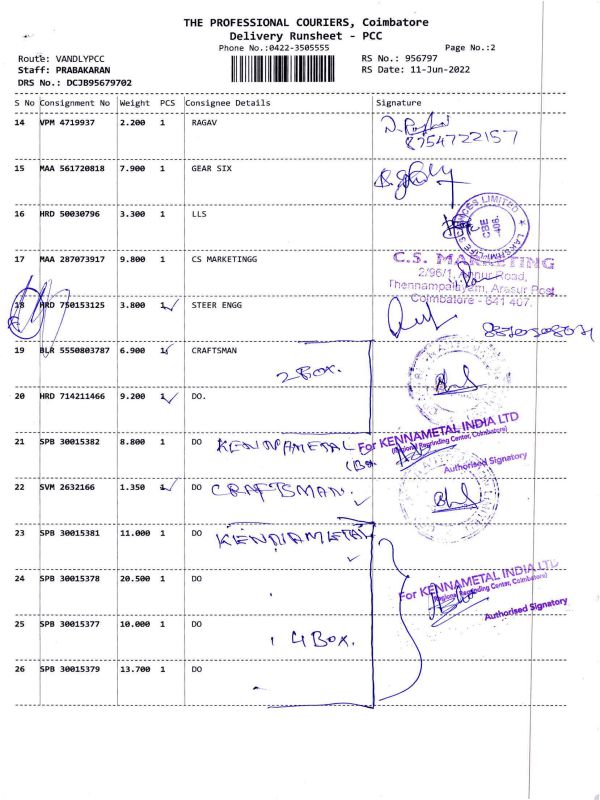 THE PROFESSIONAL COURIERS, Coimbatore
Delivery Runsheet - PCC
Phone No.:0422-3505555
Page No.:2
Route: VANDLYPCC
RS No.: 956797
Staff: PRABAKARAN
RS Date: 11-Jun-2022
DRS No.: DCJB95679702
S No Consignment No Weight PCS Consignee Details Signature
14 VPM 4719937 2.200 1 RAGAV
8754722157
15 MAA 561720818 7.900 1 GEAR SIX
16 HRD 50030796 3.300 1 LLS
CBE
17 MAA 287073917 9.800 1 CS MARKETINGG
C.S. MARKETING
2/96/1, Annur Road,
Thennampalayam, Arasur Post
Coimbatore - 641 407.
18 HRD 750153125 3.800 1 STEER ENGG
19 BLR 5550803787 6.900 1 CRAFTSMAN
2 BOX.
20 HRD 714211466 9.200 1 DO.
21 SPB 30015382 8.800 1 DO KENNAMETAL
For KENNAMETAL INDIA LTD
(Regional Regrinding Center, Coimbatore)
Authorised Signatory
22 SVM 2632166 1.350 1 DO CRAFTSMAN.
23 SPB 30015381 11.000 1 DO KENNAMETAL
24 SPB 30015378 20.500 1 DO
For KENNAMETAL INDIA LTD
(Regional Regrinding Center, Coimbatore)
Authorised Signatory
25 SPB 30015377 10.000 1 DO
4 BOX.
26 SPB 30015379 13.700 1 DO